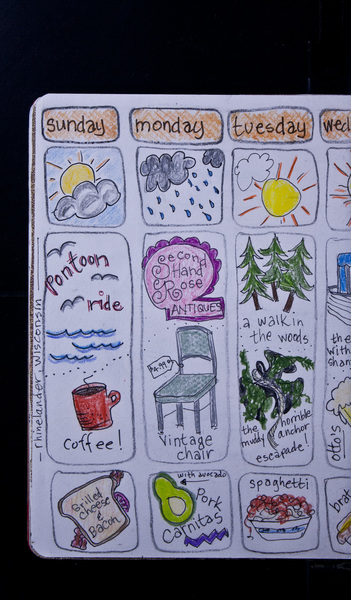 sunday
monday
tuesday
wed
rhinelander wisconsin
Pontoon
ride
Coffee!
Second
Hand
Rose
ANTIQUES
Vintage
chair
a walk in
the woods
the
muddy
horrible
anchor
escapade!
the
with
shan
Otto's
Grilled
cheese
&
Bacon
with avocado
Pork
Carnitas
spaghetti
brat